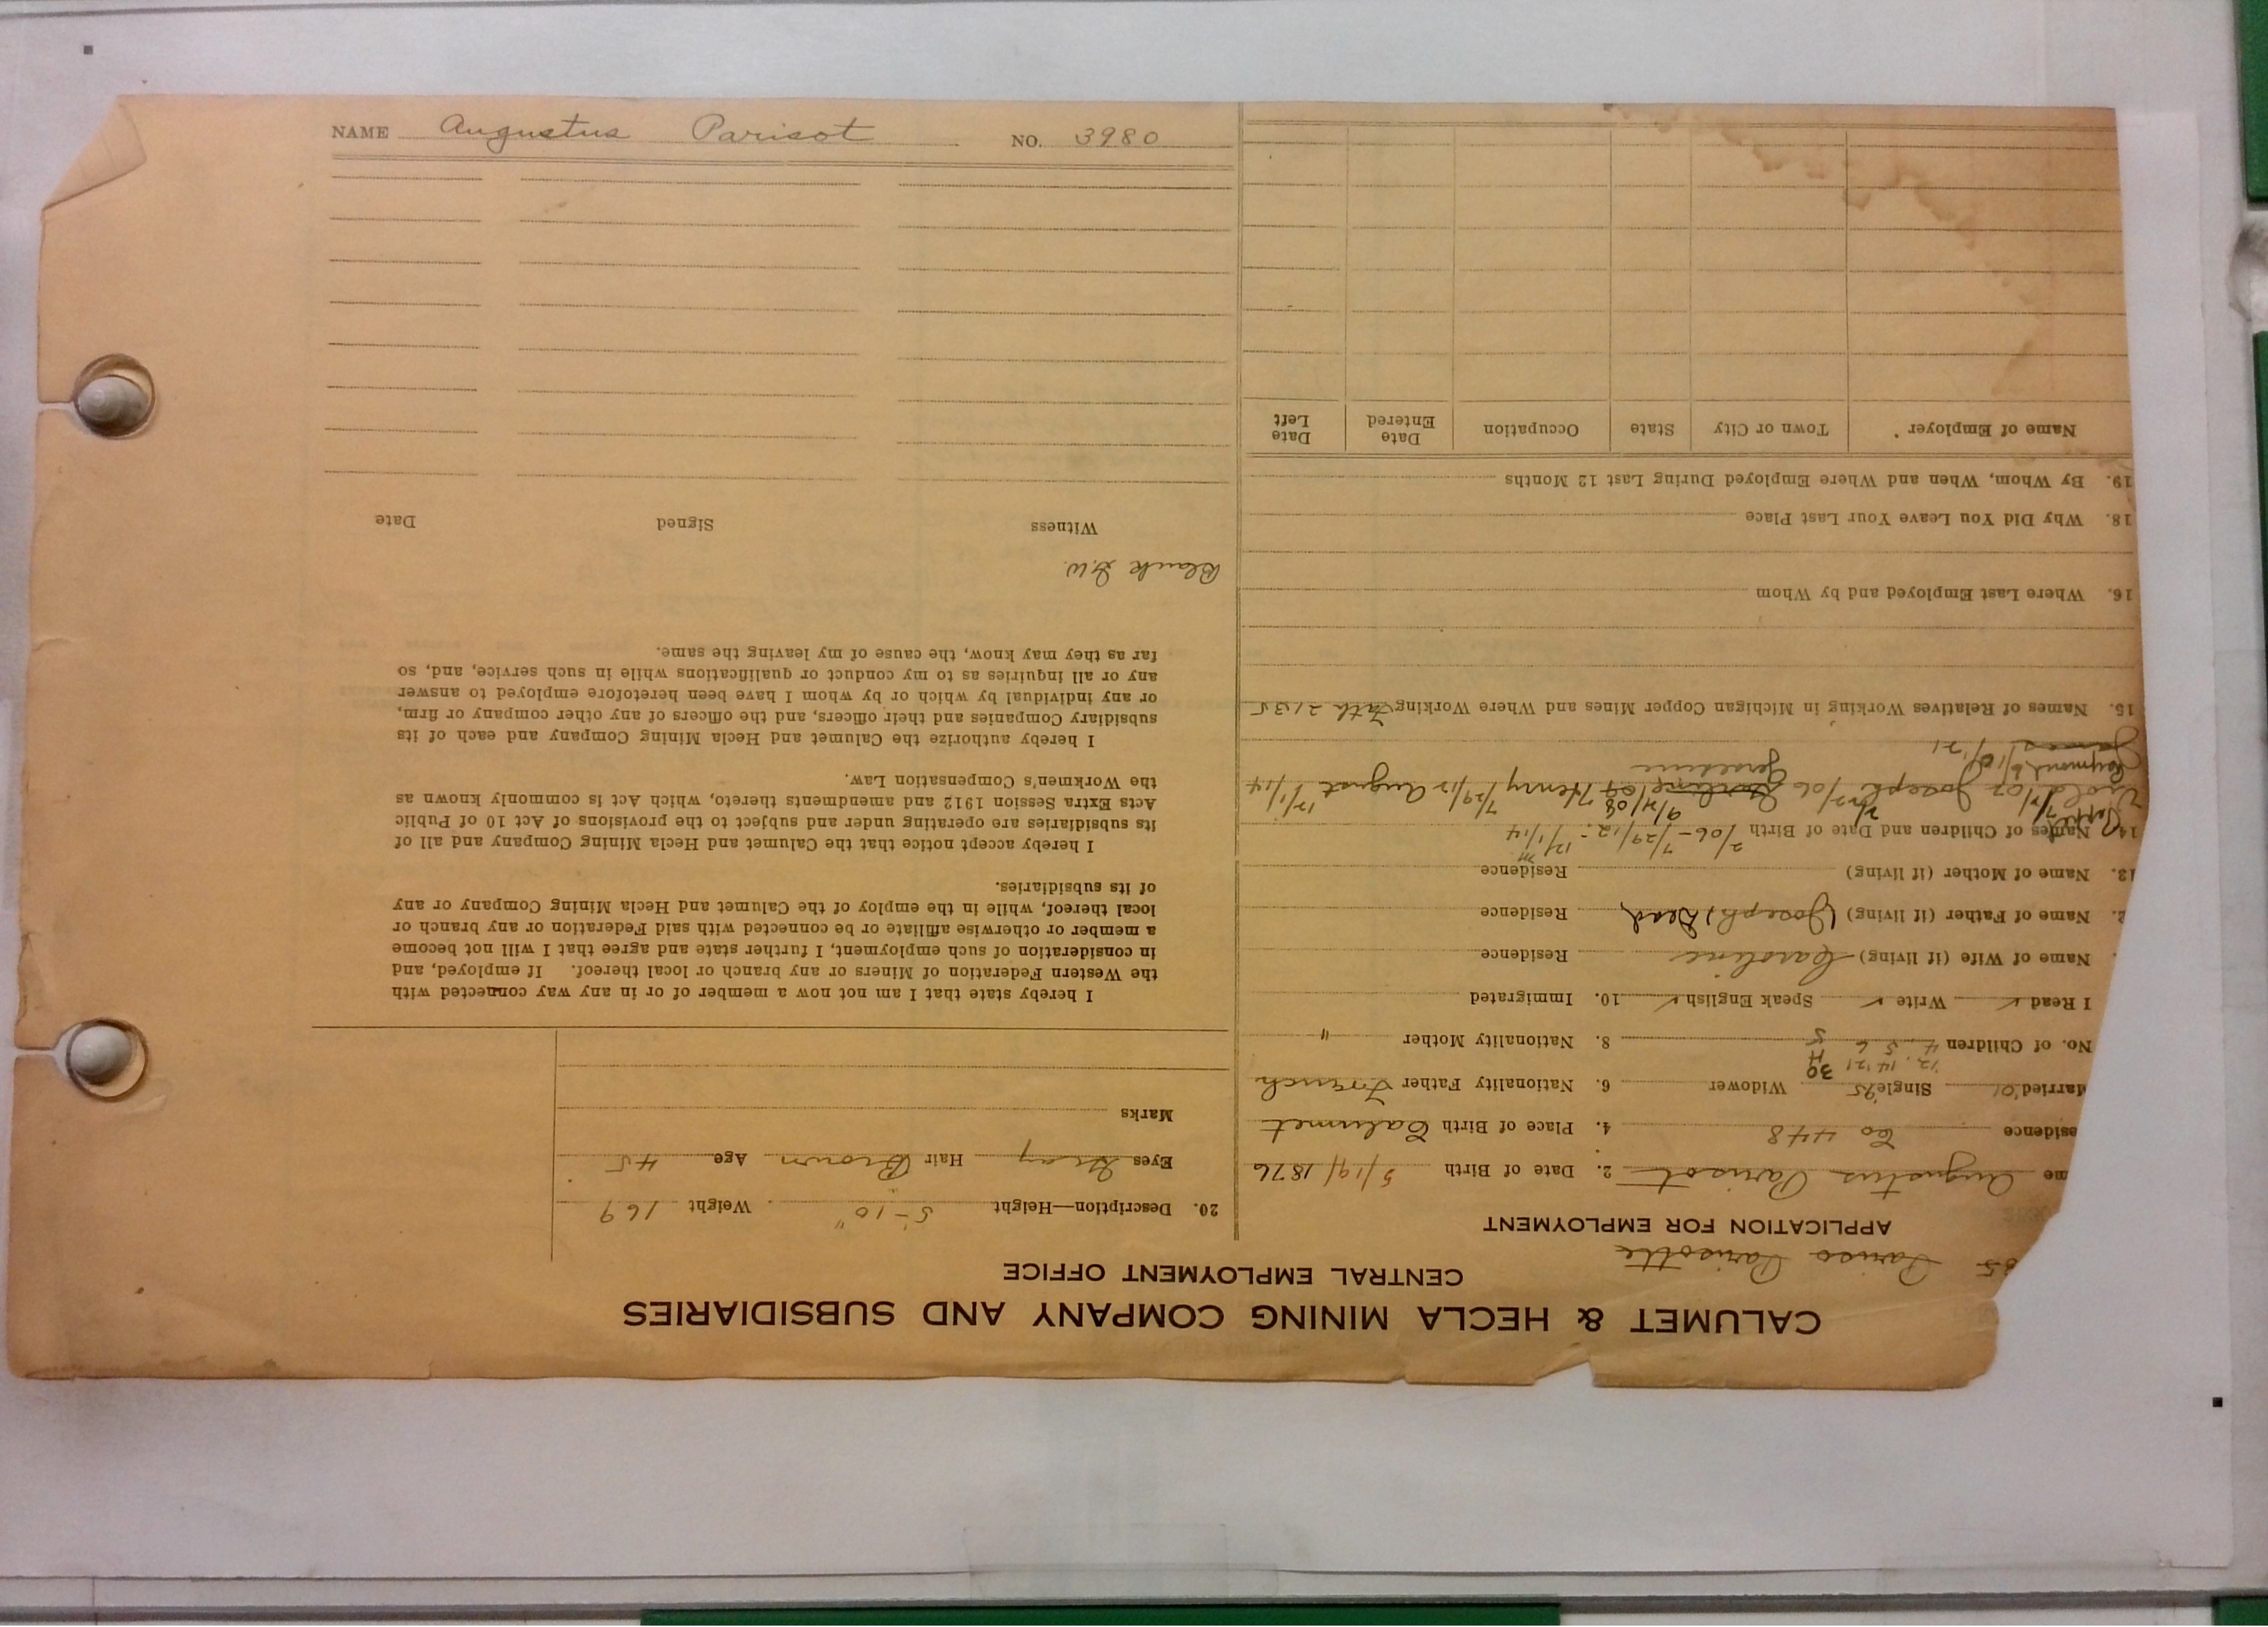 NAME Augustus Parisot NO. 3980
CALUMET & HECLA MINING COMPANY AND SUBSIDIARIES
CENTRAL EMPLOYMENT OFFICE
Parisotte
APPLICATION FOR EMPLOYMENT
me Augustus Parisot 2. Date of Birth 5/19/1876
esidence Co 448 4. Place of Birth Calumet
Married '01 Single '95 Widower 6. Nationality Father French
12. 14 '21 30
No. of Children 4 5 6 5 8. Nationality Mother "
I Read ✓ Write ✓ Speak English ✓ 10. Immigrated
Name of Wife (if living) Caroline Residence
2. Name of Father (if living) (Joseph) Dead Residence
13. Name of Mother (if living) Residence
14. Names of Children and Date of Birth 2/06 - 7/29/12 - 12/1/14
Joseph 2/06 9/4/08 Henry 7/29/12 August 12/1/14
Raymond Geraldine
James
15. Names of Relatives Working in Michigan Copper Mines and Where Working 2135
16. Where Last Employed and by Whom
18. Why Did You Leave Your Last Place
19. By Whom, When and Where Employed During Last 12 Months
Name of Employer Town or City State Occupation Date Entered Date Left
20. Description—Height 5-10" Weight 169
Eyes Gray Hair Brown Age 45
Marks
I hereby state that I am not now a member of or in any way connected with
the Western Federation of Miners or any branch or local thereof. If employed, and
in consideration of such employment, I further state and agree that I will not become
a member or otherwise affiliate or be connected with said Federation or any branch or
local thereof, while in the employ of the Calumet and Hecla Mining Company or any
of its subsidiaries.
I hereby accept notice that the Calumet and Hecla Mining Company and all of
its subsidiaries are operating under and subject to the provisions of Act 10 of Public
Acts Extra Session 1912 and amendments thereto, which Act is commonly known as
the Workmen's Compensation Law.
I hereby authorize the Calumet and Hecla Mining Company and each of its
subsidiary Companies and their officers, and the officers of any other company or firm,
or any individual by which or by whom I have been heretofore employed to answer
any or all inquiries as to my conduct or qualifications while in such service, and, so
far as they may know, the cause of my leaving the same.
Blank
Witness Signed Date